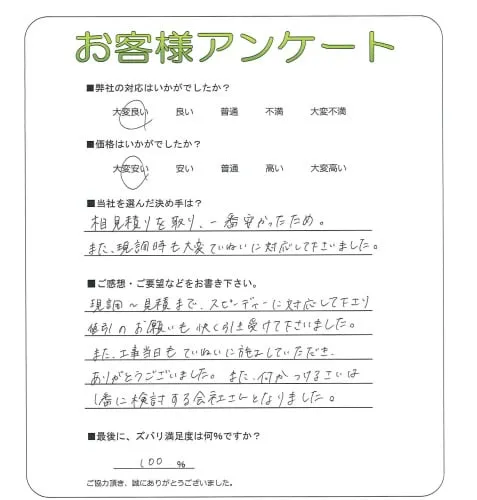 お客様アンケート
■弊社の対応はいかがでしたか?
大変良い 良い 普通 不満 大変不満
■価格はいかがでしたか?
大変安い 安い 普通 高い 大変高い
■当社を選んだ決め手は?
相見積りを取り、一番安かったため。
また、現調時も大変ていねいに対応して下さいました。
■ご感想・ご要望などをお書き下さい。
現調～見積まで、スピーディーに対応して下さり
値引のお願いも快く引き受けて下さいました。
また、工事当日もていねいに施工していただき、
ありがとうございました。また、何かつけるさいは
1番に検討する会社さんとなりました。
■最後に、ズバリ満足度は何%ですか?
100 %
ご協力頂き、誠にありがとうございました。